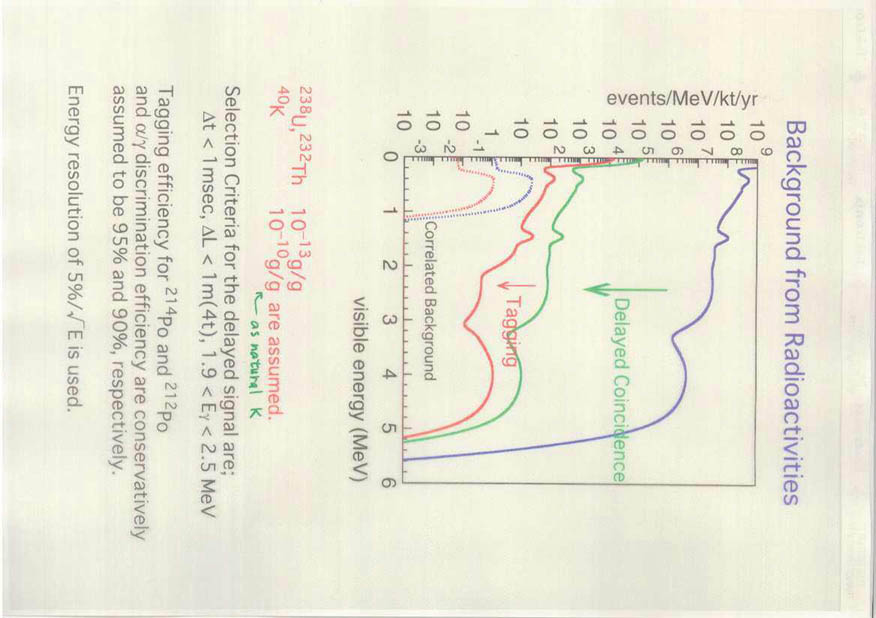 Background from Radioactivities
events/MeV/kt/yr
10⁹
10⁸
10⁷
10⁶
10⁵
10⁴
10³
10²
10
1
10⁻¹
10⁻²
10⁻³
Delayed Coincidence
Tagging
Correlated Background
0 1 2 3 4 5 6
visible energy (MeV)
²³⁸U, ²³²Th 10⁻¹³g/g
⁴⁰K 10⁻¹⁰g/g are assumed.
as natural K
Selection Criteria for the delayed signal are;
Δt < 1msec, ΔL < 1m(4t), 1.9 < Eγ < 2.5 MeV
Tagging efficiency for ²¹⁴Po and ²¹²Po
and α/γ discrimination efficiency are conservatively
assumed to be 95% and 90%, respectively.
Energy resolution of 5%/√E is used.